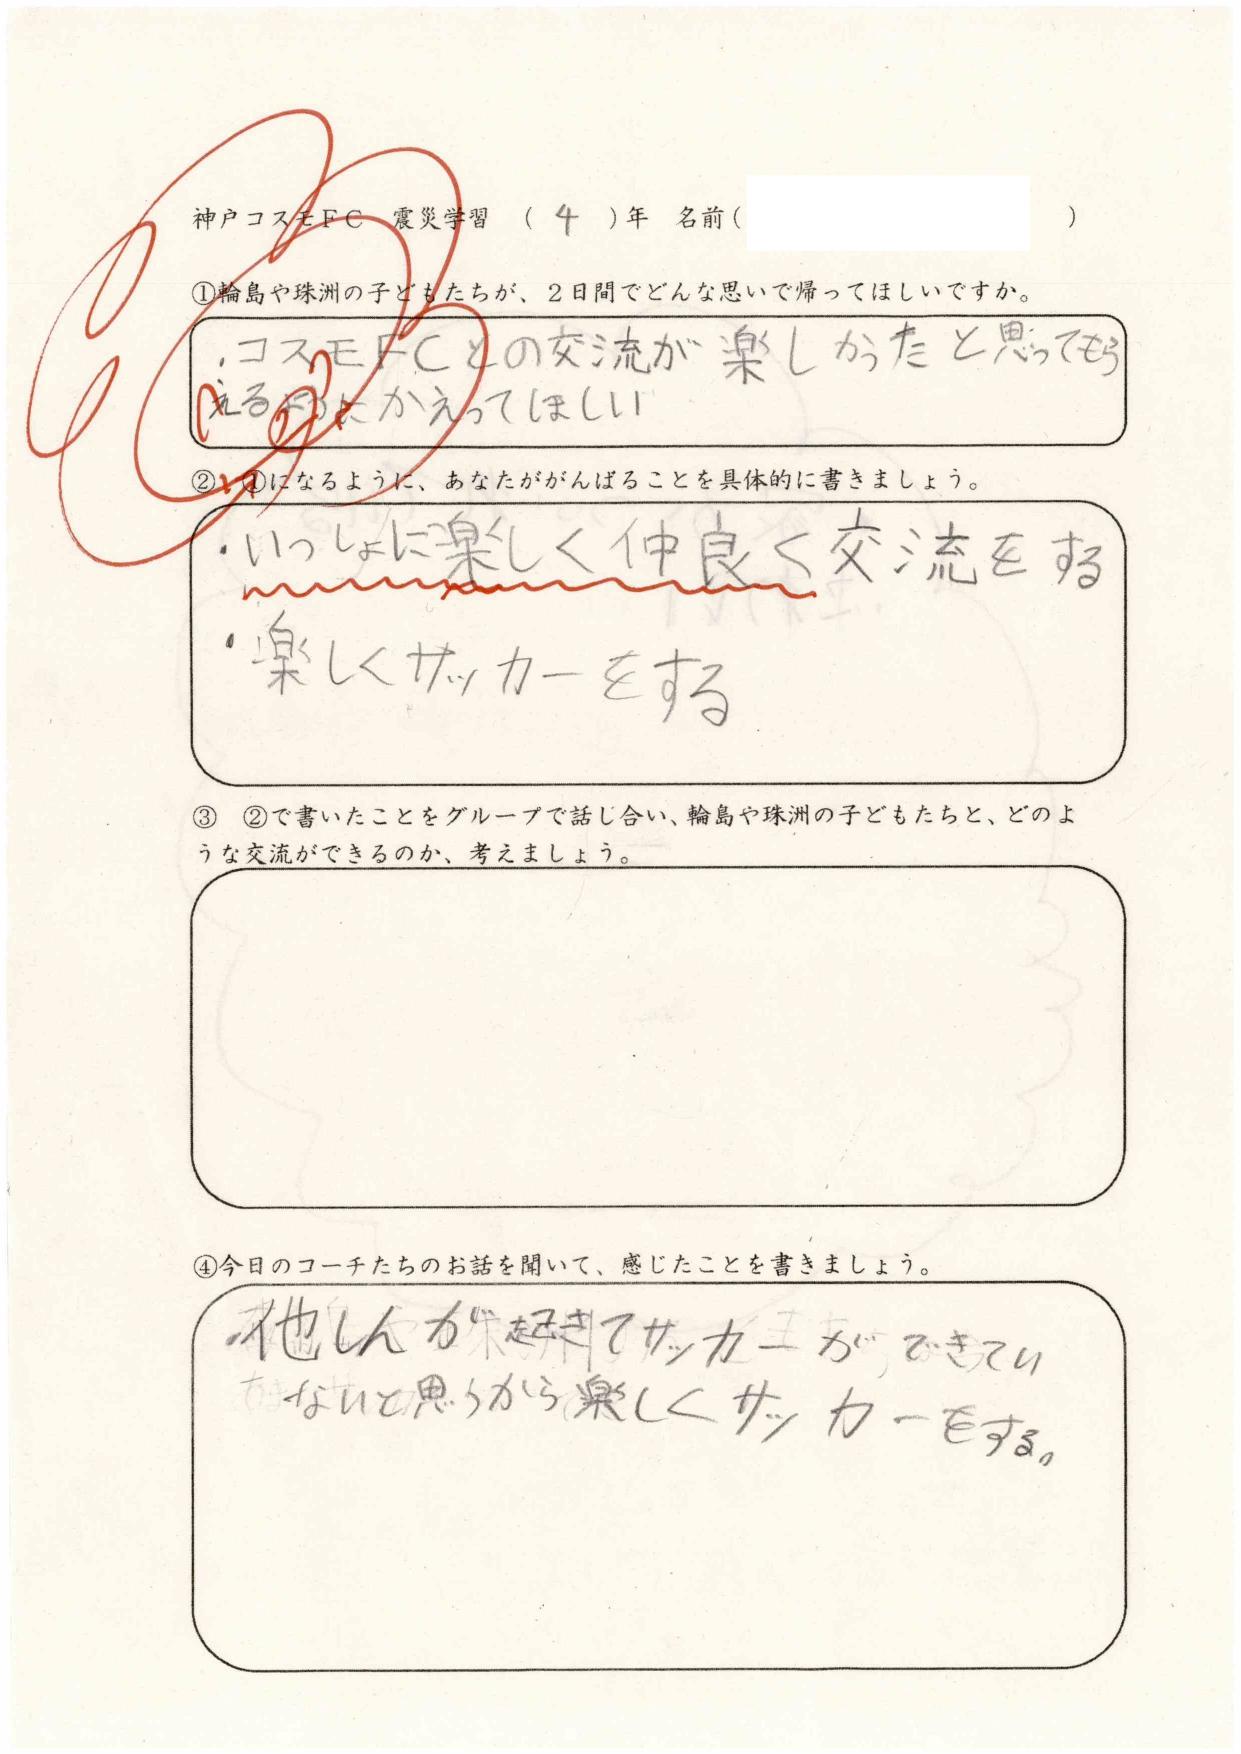 神戸コスモFC　震災学習　（ 4 ）年　名前（　　　　　）
①輪島や珠洲の子どもたちが、２日間でどんな思いで帰ってほしいですか。
・コスモFCとの交流が楽しかったと思ってもら
えるようにかえってほしい
②　①になるように、あなたががんばることを具体的に書きましょう。
・いっしょに楽しく仲良く交流をする
・楽しくサッカーをする
③　②で書いたことをグループで話し合い、輪島や珠洲の子どもたちと、どのよ
うな交流ができるのか、考えましょう。
④今日のコーチたちのお話を聞いて、感じたことを書きましょう。
・地しんが起きてサッカーができてい
ないと思うから楽しくサッカーをする。